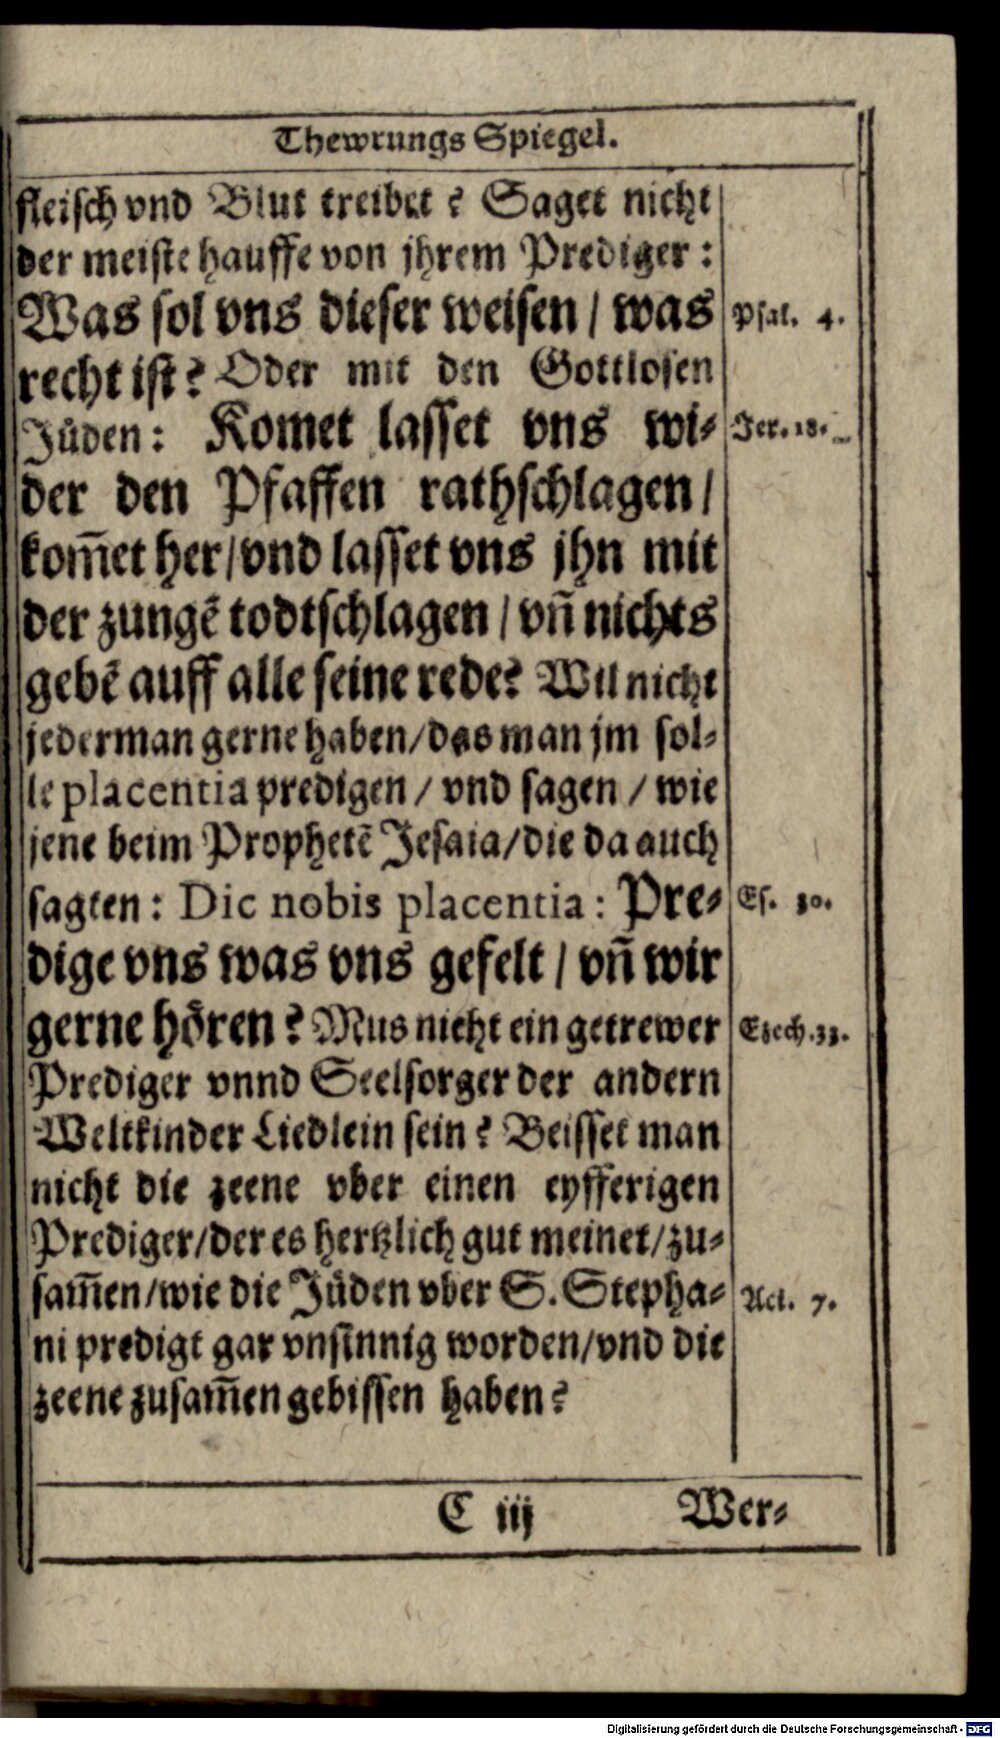 Thewrungs Spiegel.
fleisch vnd Blut treibet? Saget nicht
der meiste hauffe von jhrem Prediger:
Was sol vns dieser weisen / was
Psal. 4.
recht ist? Oder mit den Gottlosen
Jůden: Komet lasset vns wi⸗
Jer. 18.
der den Pfaffen rathschlagen /
kom̃et her / vnd lasset vns jhn mit
der zungẽ todtschlagen / vñ nichts
gebẽ auff alle seine rede? Wil nicht
jederman gerne haben / das man jm sol⸗
le placentia predigen / vnd sagen / wie
jene beim Prophetẽ Jesaia / die da auch
sagten: Dic nobis placentia: Pre⸗
Es. 30.
dige vns was vns gefelt / vñ wir
gerne hŏren? Mus nicht ein getrewer
Ezech. 33.
Prediger vnnd Seelsorger der andern
Weltkinder Liedlein sein? Beisset man
nicht die zeene vber einen eyfferigen
Prediger / der es hertzlich gut meinet / zu⸗
sam̃en / wie die Jůden vber S. Stepha⸗
Act. 7.
ni predigt gar vnsinnig worden / vnd die
zeene zusam̃en gebissen haben?
C iij
Wer⸗
Digitalisierung gefördert durch die Deutsche Forschungsgemeinschaft - DFG